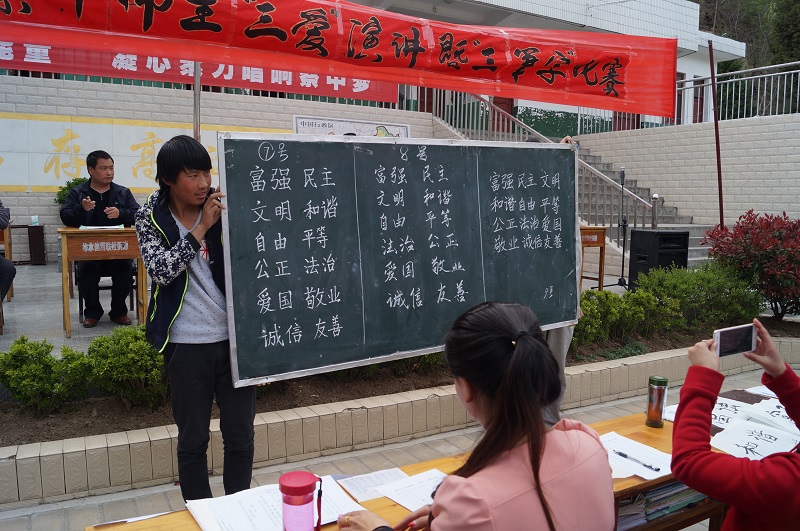 师生"三爱"演讲暨"三笔字"比赛
凝心聚力唱响中国梦
中国行政图
存高
⑦号
富强 民主
文明 和谐
自由 平等
公正 法治
爱国 敬业
诚信 友善
8号
富强 民主
文明 和谐
自由 平等
法治 公正
爱国 敬业
诚信 友善
富强 民主 文明
和谐 自由 平等
公正 法治 爱国
敬业 诚信 友善